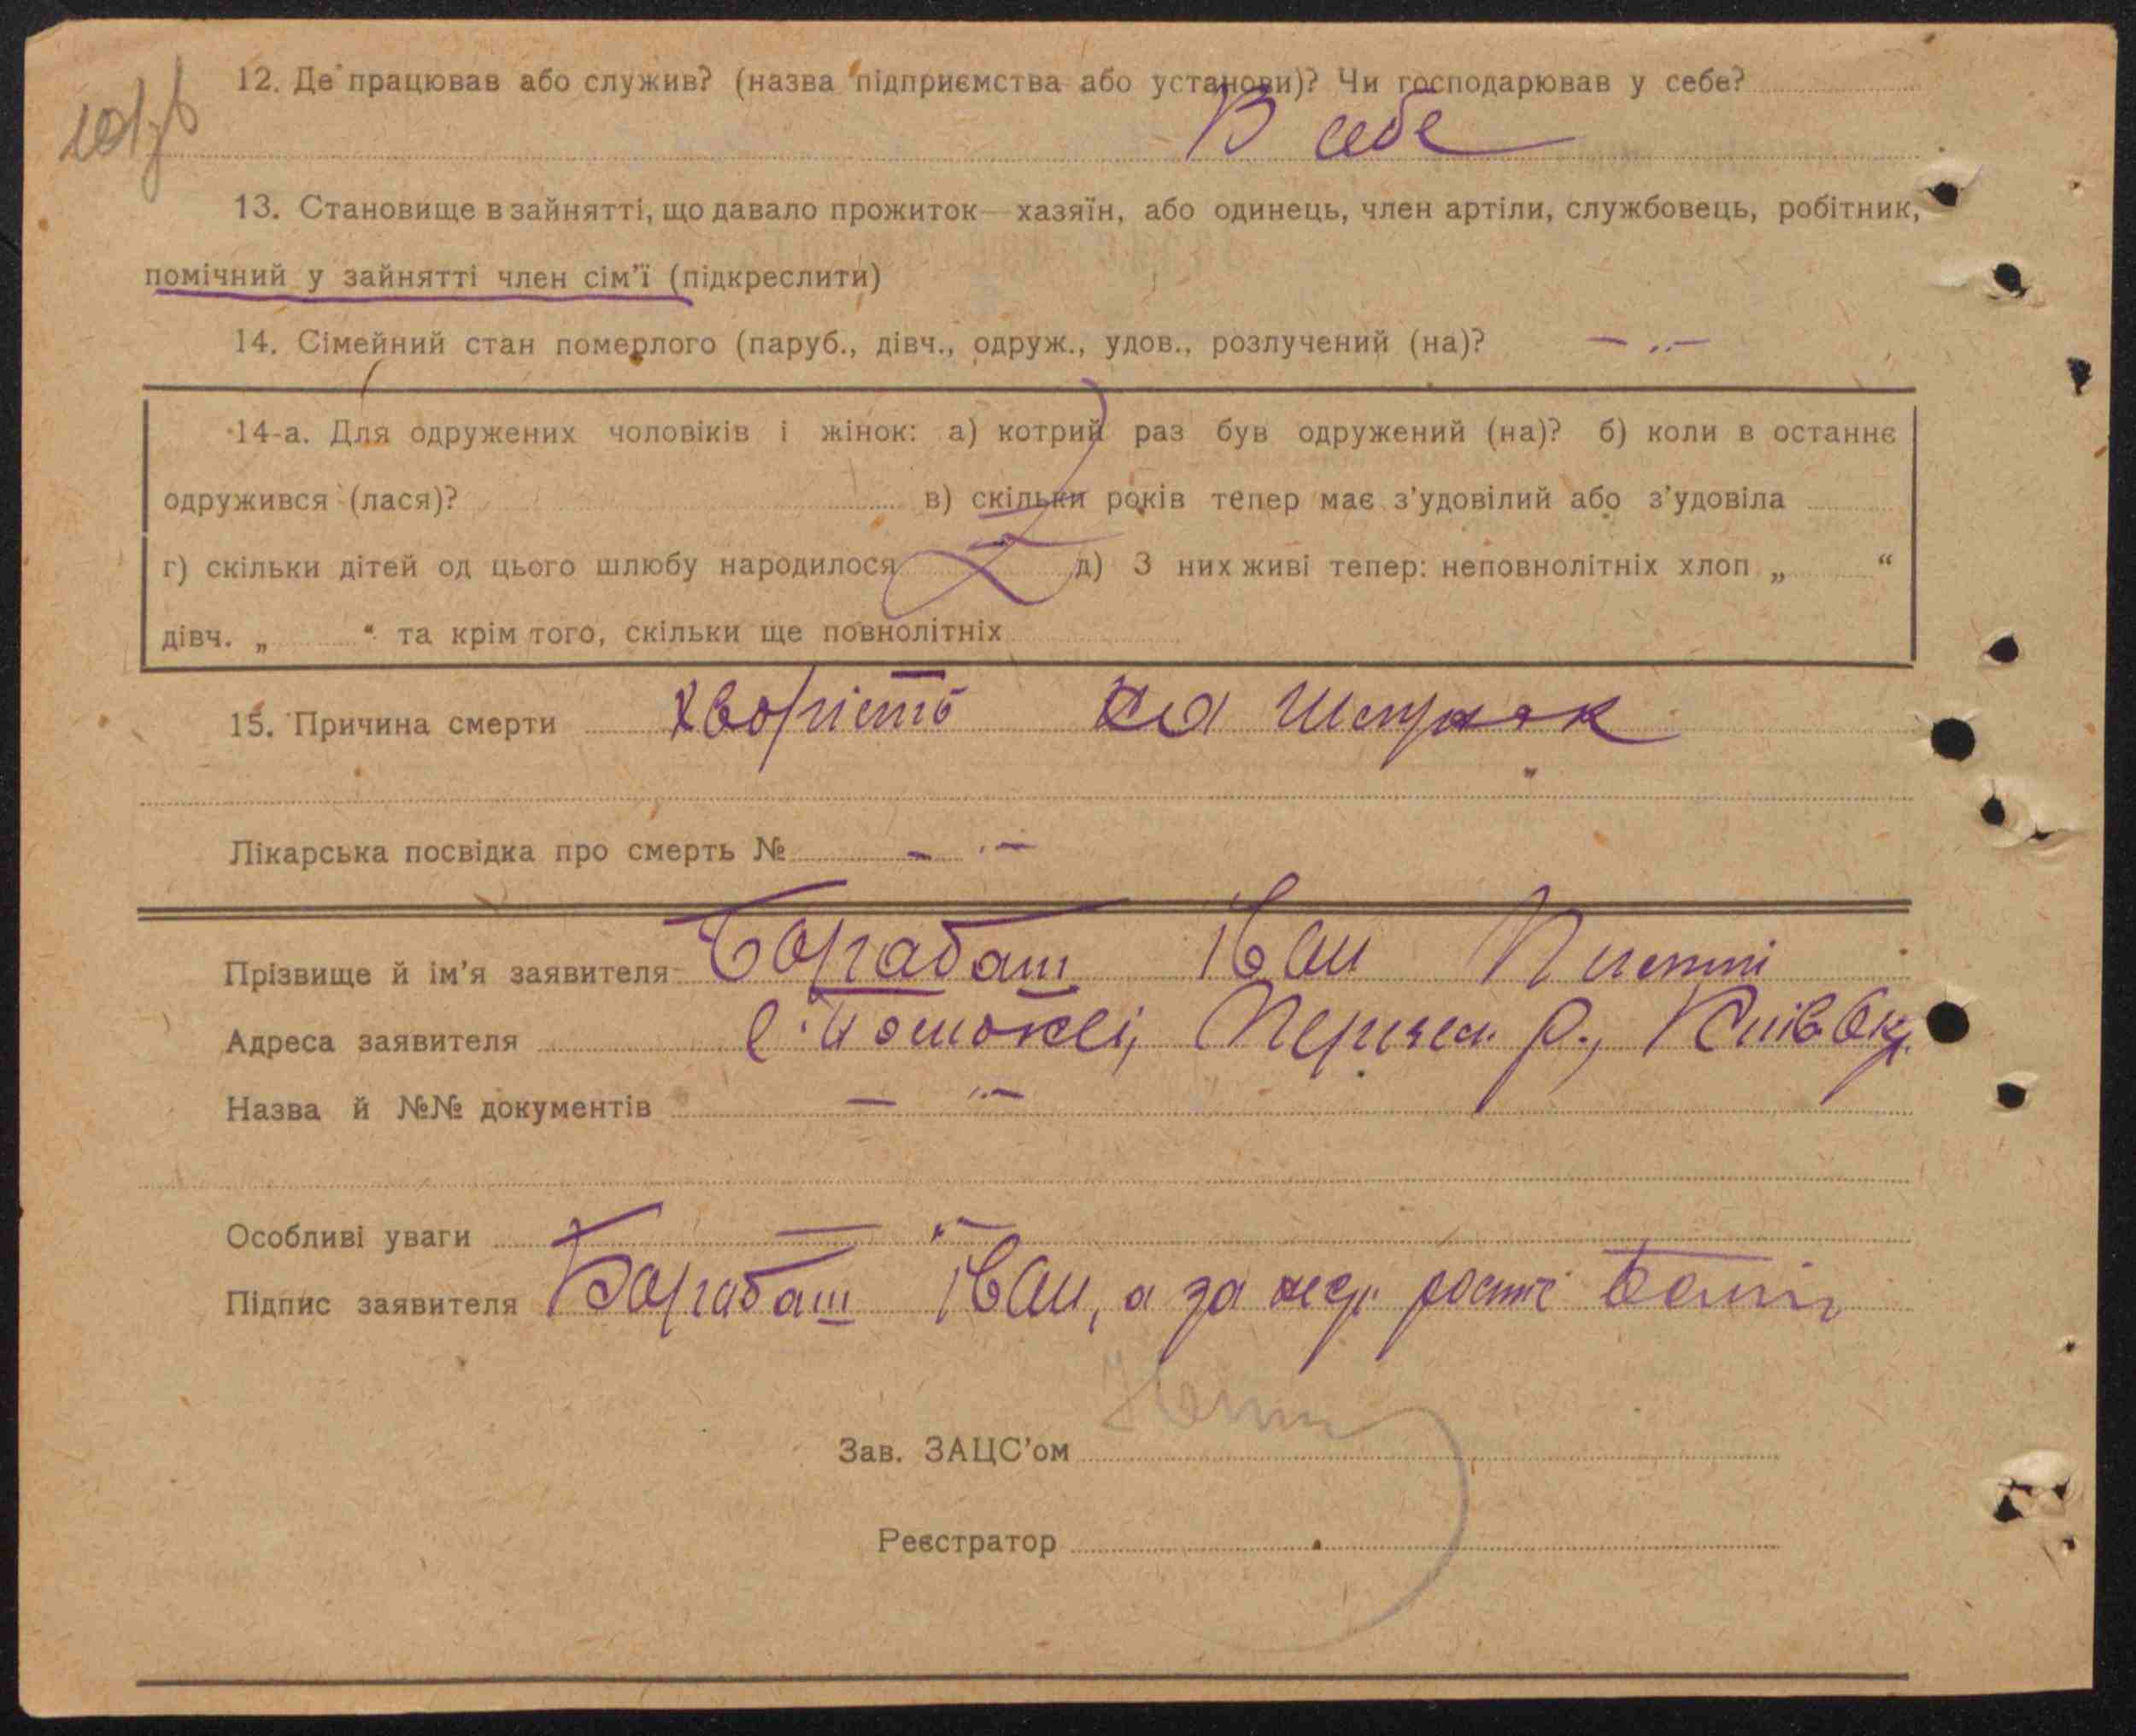 12. Де працював або служив? (назва підприємства або установи)? Чи господарював у себе?
В себе
13. Становище в зайнятті, що давало прожиток — хазяїн, або одинець, член артіли, службовець, робітник,
помічний у зайнятті член сім’ї (підкреслити)
14. Сімейний стан померлого (паруб., дівч., одруж., удов., розлучений (на)? — „ —
14-а. Для одружених чоловіків і жінок: а) котрий раз був одружений (на)? б) коли в останнє
одружився (лася)? в) скільки років тепер має з’удовілий або з’удовіла
г) скільки дітей од цього шлюбу народилося д) З них живі тепер: неповнолітніх хлоп „ “
дівч. „ “ та крім того, скільки ще повнолітніх
15. Причина смерти хворість на шлунок
Лікарська посвідка про смерть № — „ —
Прізвище й ім’я заявителя Барабаш Іван
Адреса заявителя с. Р.,
Назва й №№ документів — „ —
Особливі уваги — „ —
Підпис заявителя Барабаш Іван, а за
Зав. ЗАЦС’ом
Реєстратор